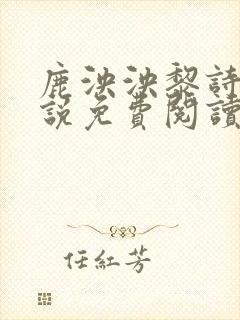 鹿泱泱黎詩
說免費閱讀
任紅芳